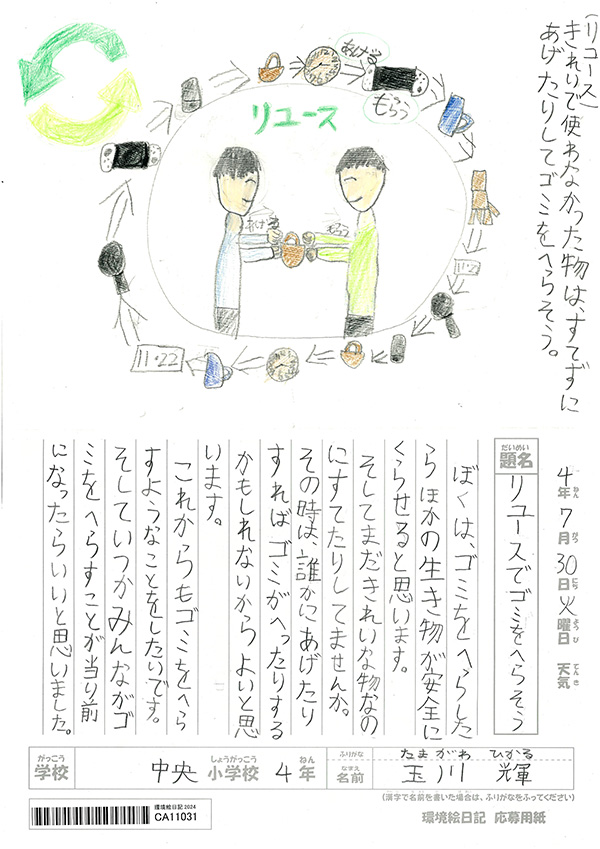 (リユース)
きれいで使わなかった物は、すてずに
あげたりしてゴミをへらそう。
リユース
あげる
もらう
あげる
もらう
11:22
11・22
4年7月30日火曜日 天気
ねん がつ にち ようび てんき
だいめい
題名
リユースでゴミをへらそう
ぼくは、ゴミをへらした
らほかの生き物が安全に
くらせると思います。
そしてまだきれいな物なの
にすてたりしてませんか。
その時は、誰かにあげたり
すればゴミがへったりする
かもしれないからよいと思
います。
これからもゴミをへら
すようなことをしたいです。
そしていつかみんながゴ
ミをへらすことが当り前
になったらいいと思いました。
がっこう しょうがっこう ねん
学校 中央 小学校 4年
ふりがな たまがわ ひかる
なまえ
名前 玉川 輝
(漢字で名前を書いた場合は、ふりがなをふってください)
環境絵日記 2024
CA11031
環境絵日記 応募用紙